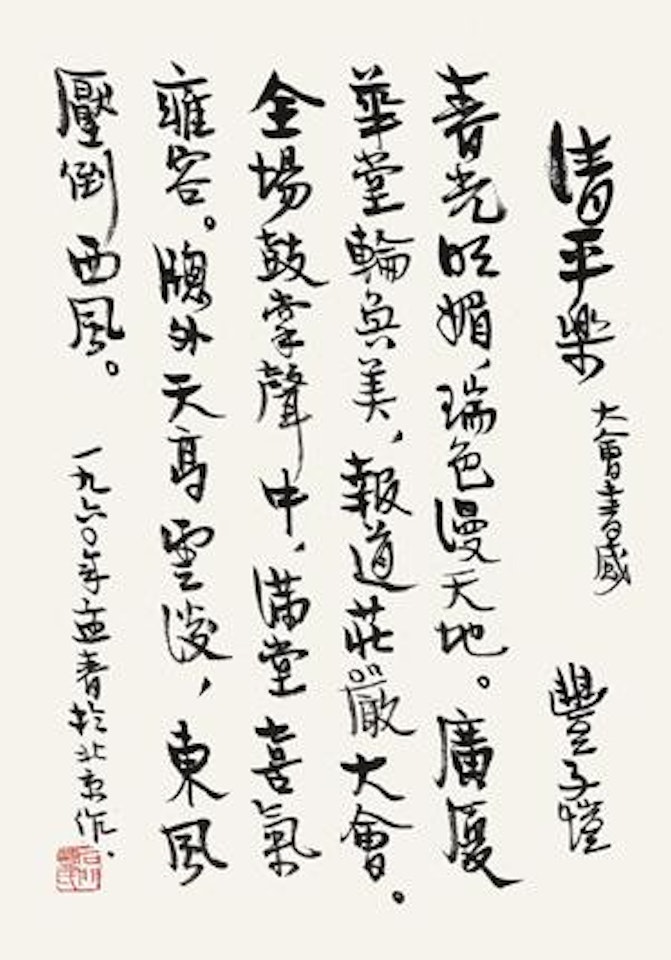 清平樂 大會書感 豐子愷
春光明媚，瑞色漫天地。廣廈
華堂輪奐美，報道莊嚴大會。
全場鼓掌聲中，滿堂喜氣
雍容。牕外天高雲淡，東風
壓倒西風。 一九六〇年孟春於北京作。